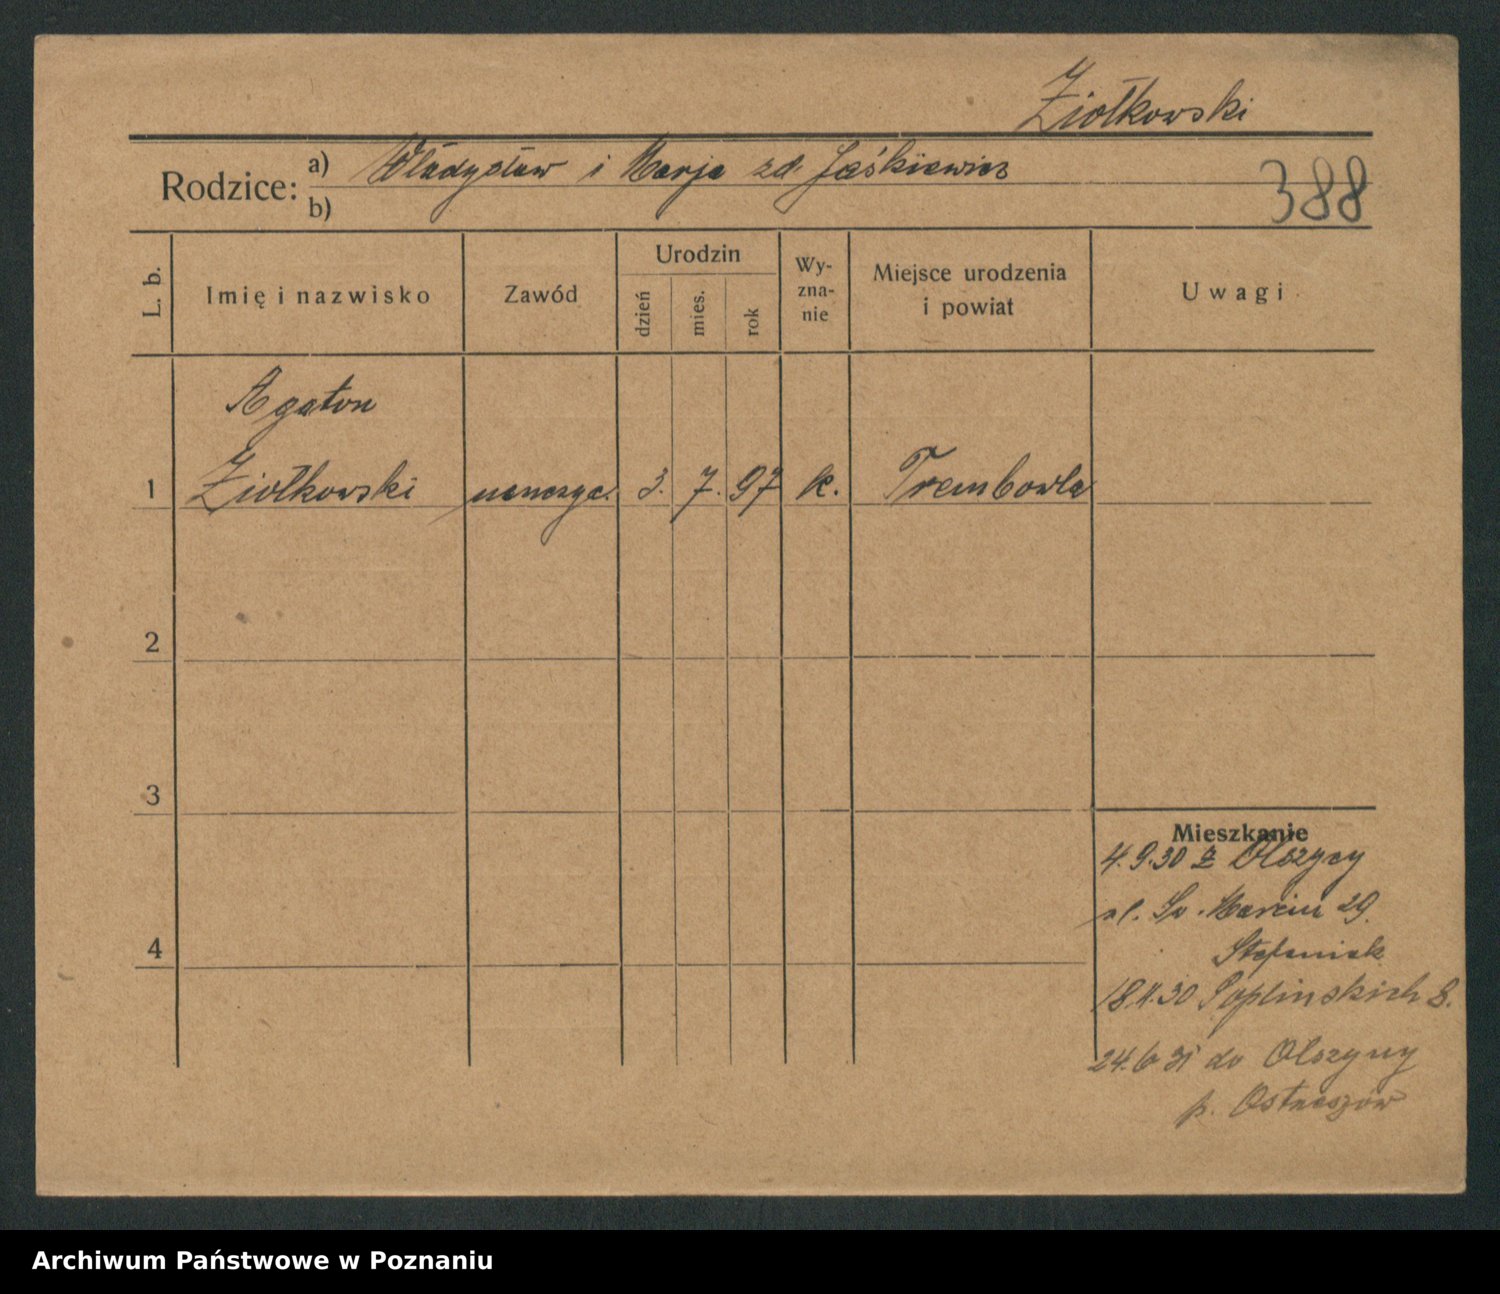 Ziołkowski
Rodzice: a) Władysław i Marja zd. Jaśkiewicz
b)
388
L. b.
Imię i nazwisko
Zawód
Urodzin
dzień
mies.
rok
Wy-
zna-
nie
Miejsce urodzenia
i powiat
Uwagi
Agaton
1 Ziołkowski nauczyc. 3. 7. 97 k. Trembowla
2
3
4
Mieszkanie
4.9.30 z Olszyny
ul. Św. Marcin 29.
Stefaniak
18.11.30 Poplinskich 8.
24.6 31 do Olszyny
p. Ostrzeszów
Archiwum Państwowe w Poznaniu